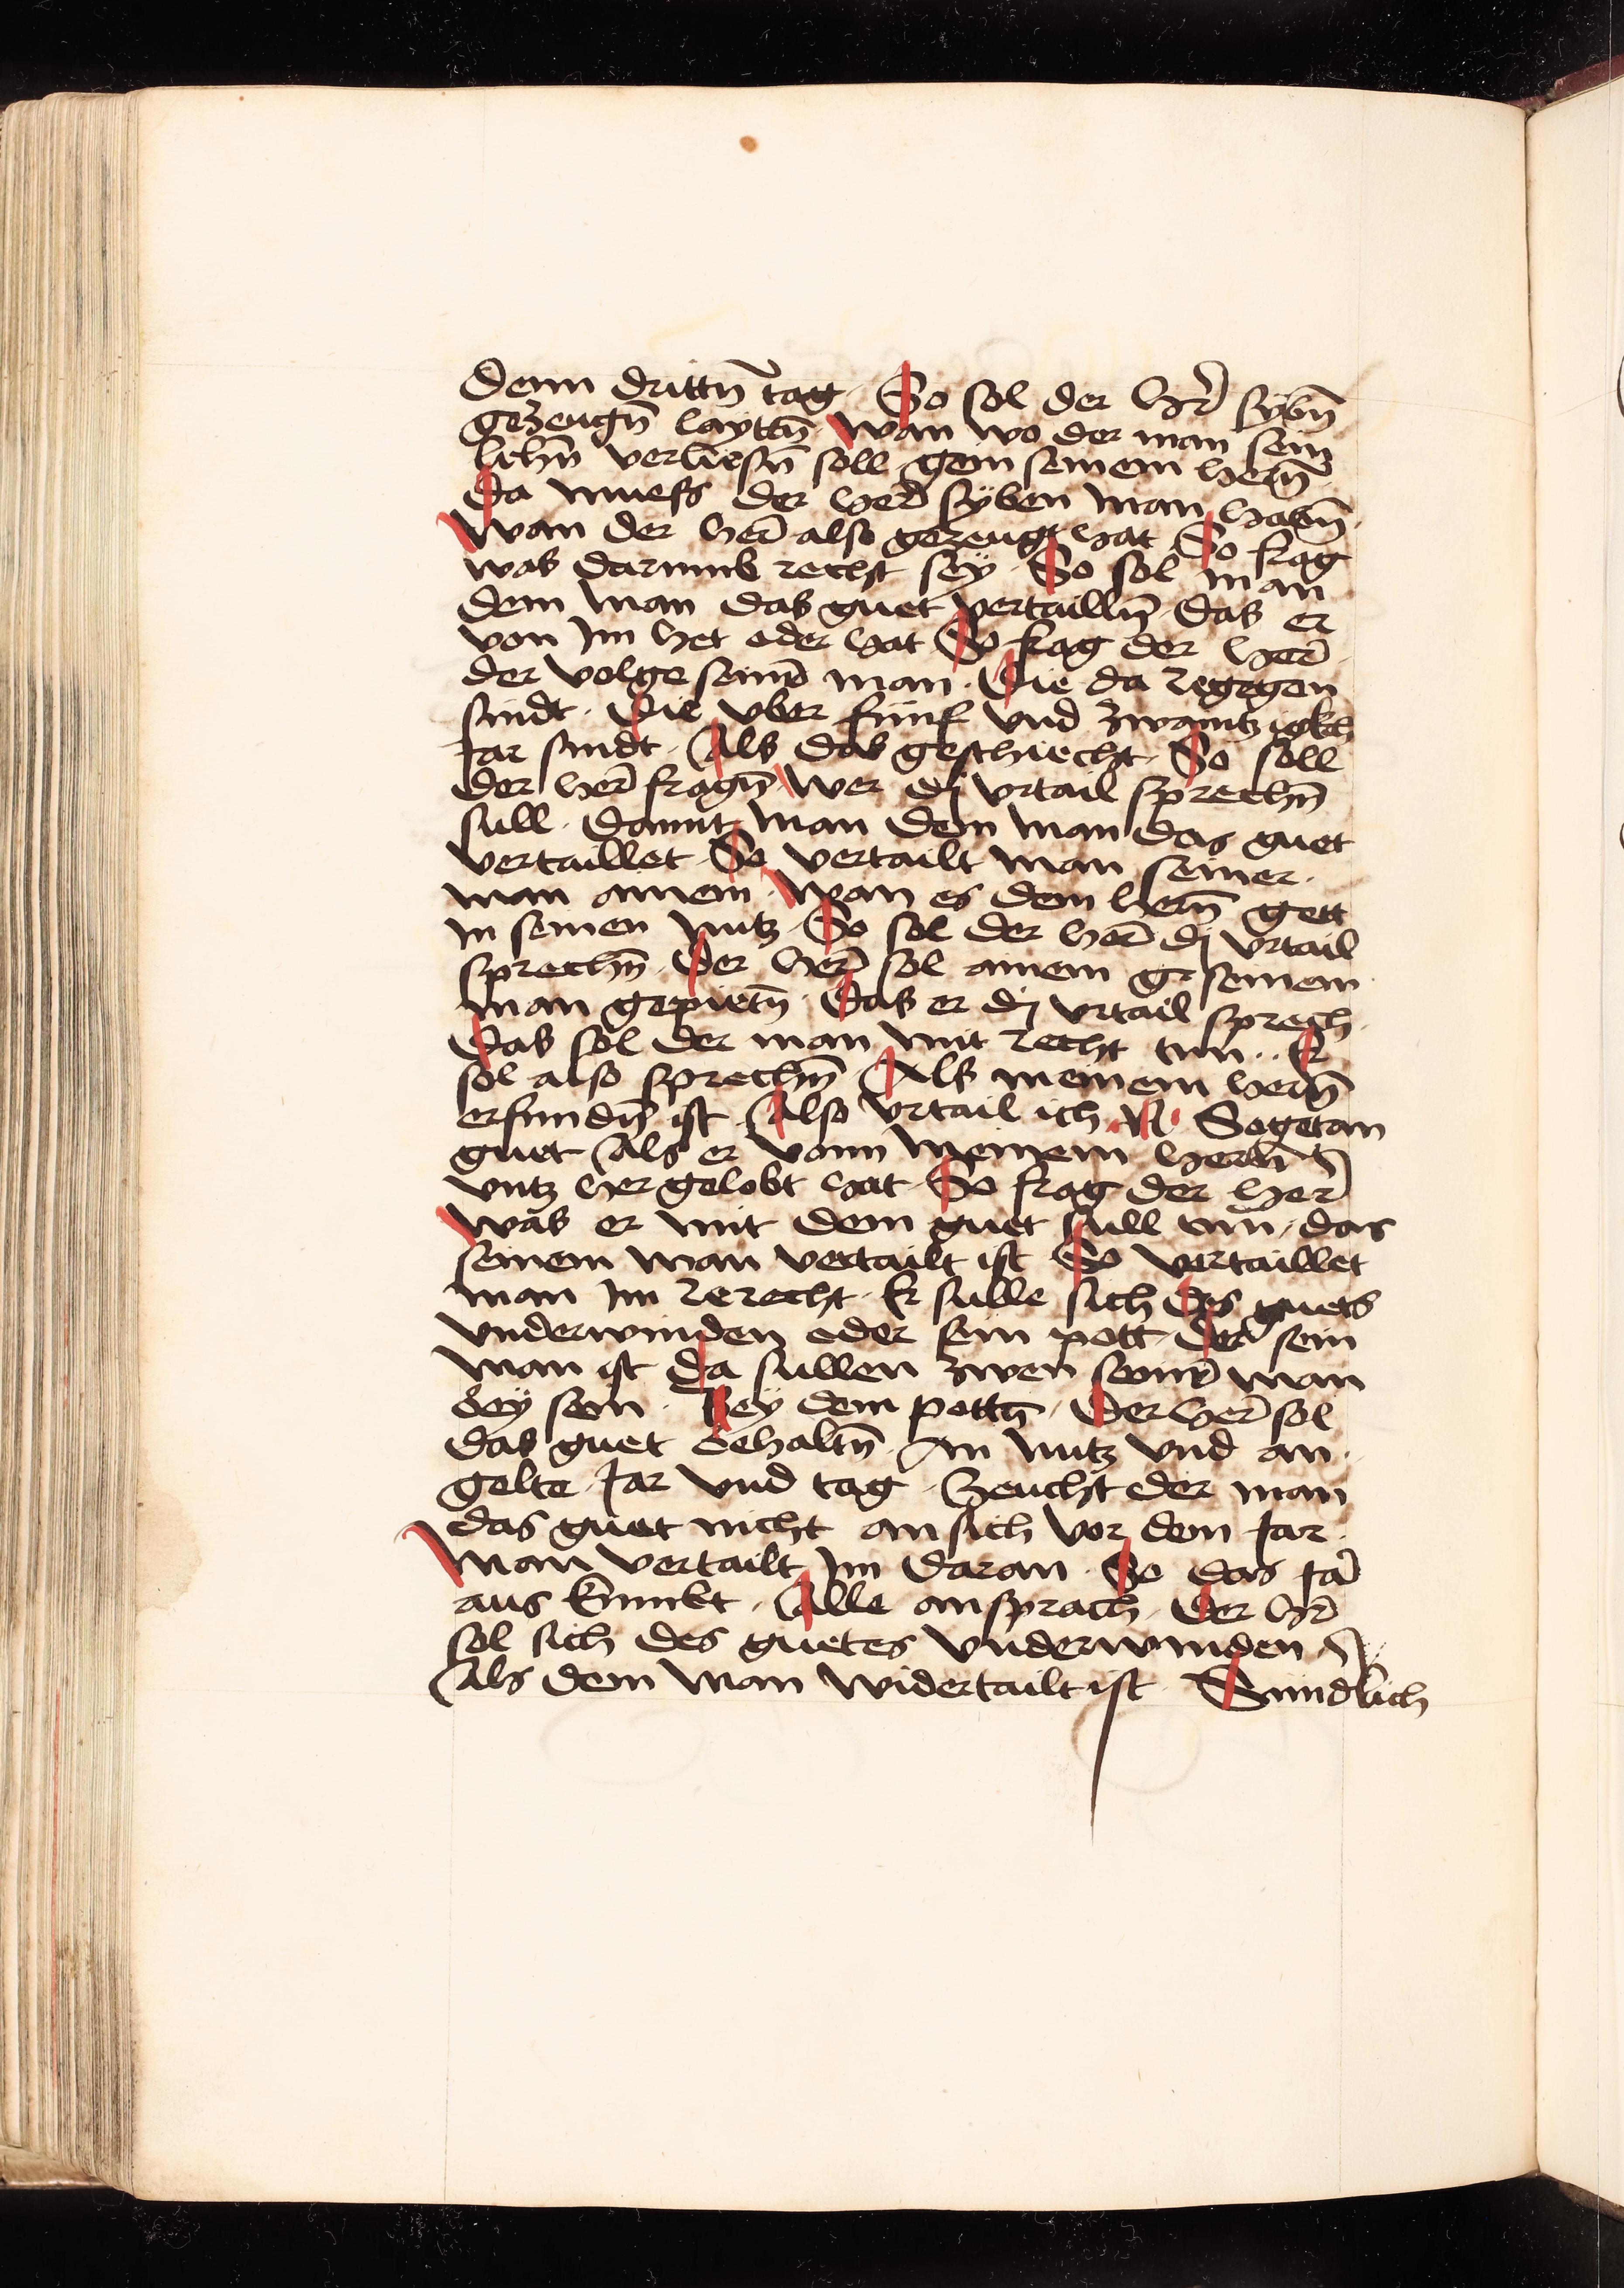 denn drittn̄ tag · So sol der hr̄ sybn̄
gezeugn̄ layttn̄ · wan wo der man sein
lehn̄ verliesn̄ soll gein seinem hern̄
da muess der her̄ syben man habn̄ ·
Wan der her̄ also gezeugt hat So frag
was darumb recht sey · So sol man
dem man das guet vertailln̄ · das er
von Im het oder hat So frag der her̄
der volge seinr̄ man · Die da zegegen
sindt · Die vber fünf vnd zwaintzigkh
Jar sindt · Als das geschiecht · So soll
der her̄ fragn̄ wer dj vrtail sprechn̄
sull · damit man dem man das guet
vertaillet · So vertailt man seiner ·
man ainem · wan es dem hern̄ gett
in seinen nutz · So sol der her̄ dj vrtail
sprechn̄ · Der her̄ sol ainem seinem
man gepietn̄ · Das er dj vrtail sprech ·
Das sol der man mit recht tun · Er
sol also sprechn̄ · Als meinem hern̄
erfundn̄ ist Also vrtail ich · N · Sogetan
guet Als er vonn meinem herrn̄
vntz her gelobt hat · So frag der her̄
Was er mit dem guet sull tun · das
seinem man vertailt ist So vertaillet
man Im zerecht · Er sulle sich des guets
vnderwinden oder sein pott · der sein
man ist da sullen zwen seinr̄ man
bey sein · Bey dem pottn̄ · Der her̄ sol
das guet behaltn̄ · An nutz vnd an ·
gelte · Jar vnd tag · Zeucht der man
das guet nicht an sich vor dem Jar ·
Man vertailt Im daran · So das Jar
aus kumbt · Alle ansprach · Der hr̄
sol sich des guetes vnderwinden
Als dem man widertailt ist · Sundlich